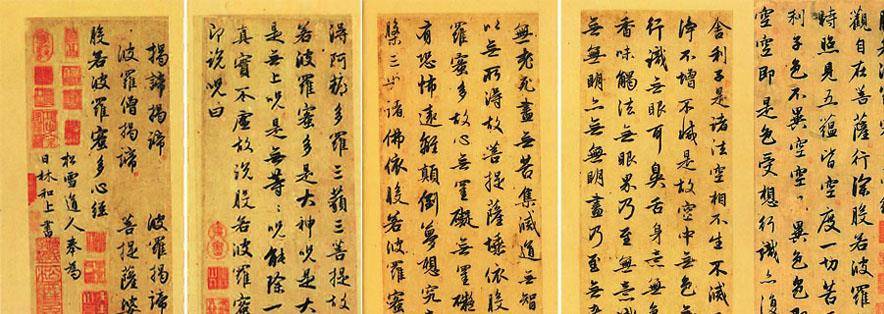 觀自在菩薩行深般若波羅
時照見五蘊皆空度一切苦
利子色不異空空異色色即
空空即是色受想行識亦復
舍利子是諸法空相不生不滅
淨不增不減是故空中無色無
行識無眼耳鼻舌身意無色
香味觸法無眼界乃至無意識
無無明亦無無明盡乃至無
無老死盡無苦集滅道無智
以無所得故菩提薩埵依般
羅蜜多故心無罣礙無罣礙
有恐怖遠離顛倒夢想究
槃三世諸佛依般若波羅蜜
得阿耨多羅三藐三菩提故
若波羅蜜多是大神咒是大
是無上咒是無等〻咒能除一
真實不虛故說般若波羅蜜
即說咒曰
揭諦揭諦 波羅揭諦
波羅僧揭諦 菩提薩婆
般若波羅蜜多心經
松雪道人奉為
日林和上書